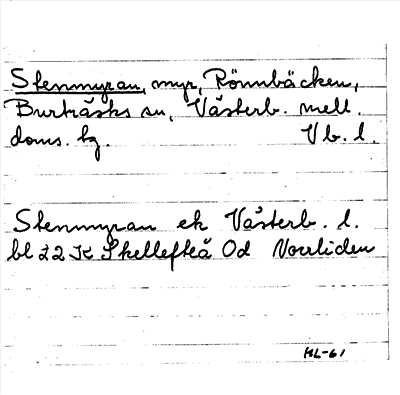 Stenmyran, myr, Rönnbäcken,
Burträsks sn, Västerb. mell.
doms. hg. Vb. l.
Stenmyran ek Västerb. l.
bl 22 K Skellefteå Od Norrliden
HL-61